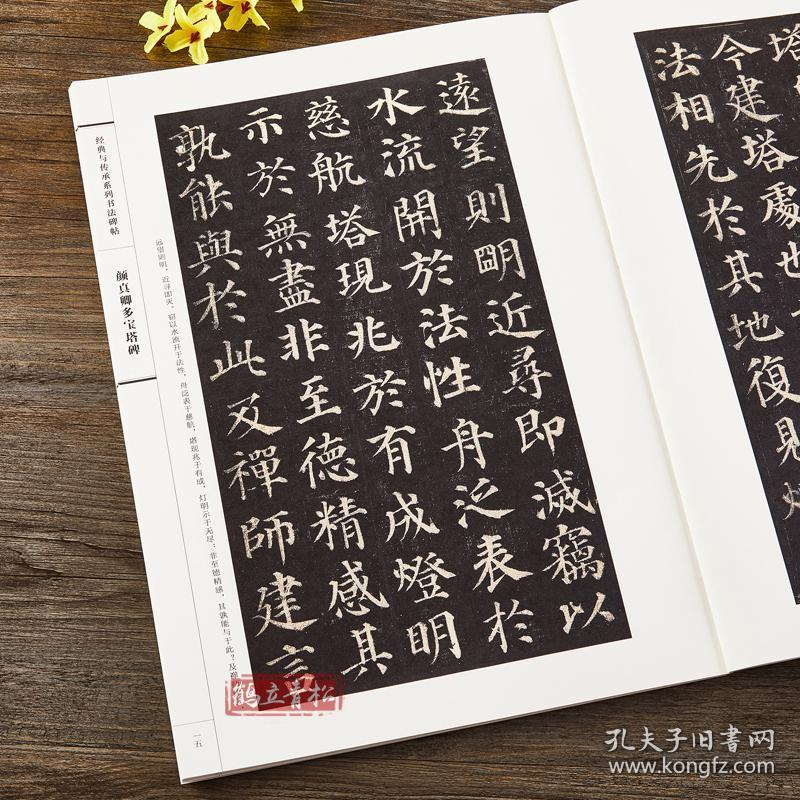 塔
今建塔處也
法相先於其地復見燈
遠望則朙近尋即滅竊以
水流開於法性舟泛表於
慈航塔現兆於有成燈明
示於無盡非至德精感其
孰能與於此及禪師建言
远望则明，近寻即灭，窃以水流开于法性，舟泛表于慈航，塔现兆于有成，灯明示于无尽：非至德精感，其孰能与于此？及禅
经典与传承系列书法碑帖
颜真卿多宝塔碑
一五
鹤立青松
孔夫子旧书网
www.kongfz.com